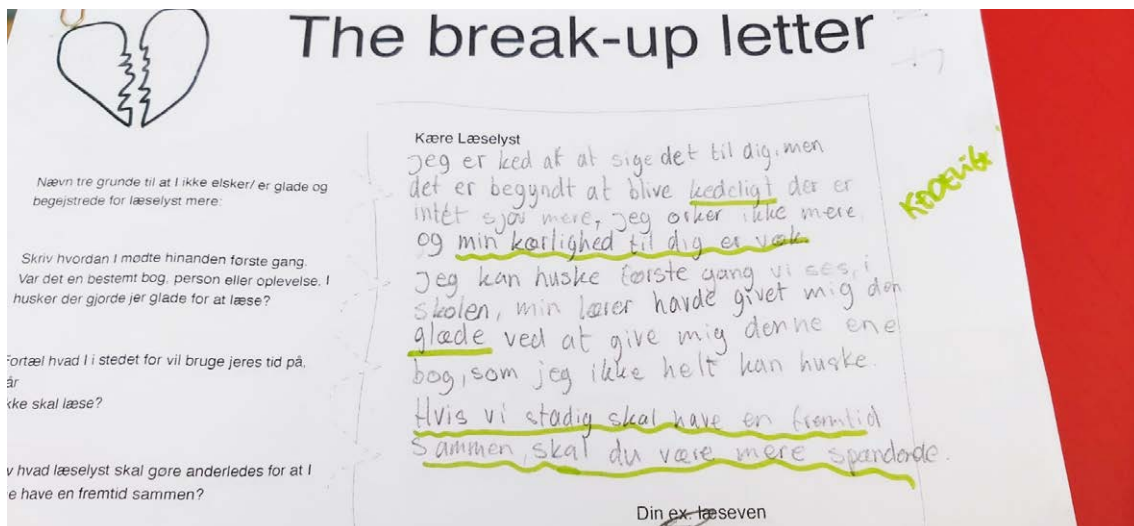 The break-up letter
Nævn tre grunde til at I ikke elsker/ er glade og
begejstrede for læselyst mere:
Skriv hvordan I mødte hinanden første gang.
Var det en bestemt bog, person eller oplevelse. I
husker der gjorde jer glade for at læse?
Fortæl hvad I i stedet for vil bruge jeres tid på,
år
kke skal læse?
v hvad læselyst skal gøre anderledes for at I
e have en fremtid sammen?
Kære Læselyst
Jeg er ked af at sige det til dig, men
det er begyndt at blive kedeligt der er
intet sjov mere, jeg orker ikke mere
og min kærlighed til dig er væk.
Jeg kan huske første gang vi ses, i
skolen, min lærer havde givet mig den
glæde ved at give mig denne ene
bog, som jeg ikke helt kan huske.
Hvis vi stadig skal have en fremtid
Sammen, skal du være mere spændende.
Din ex. læseven
KEDELIGt